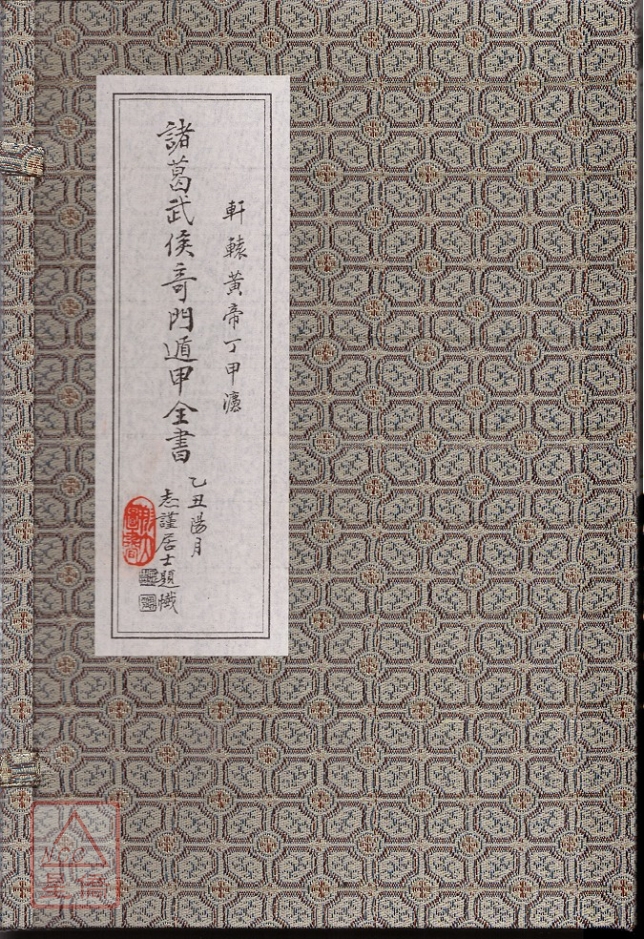 軒轅黃帝丁甲瀍
諸葛武侯奇門遁甲全書
乙丑陽月
志謹居士題幟
星僑